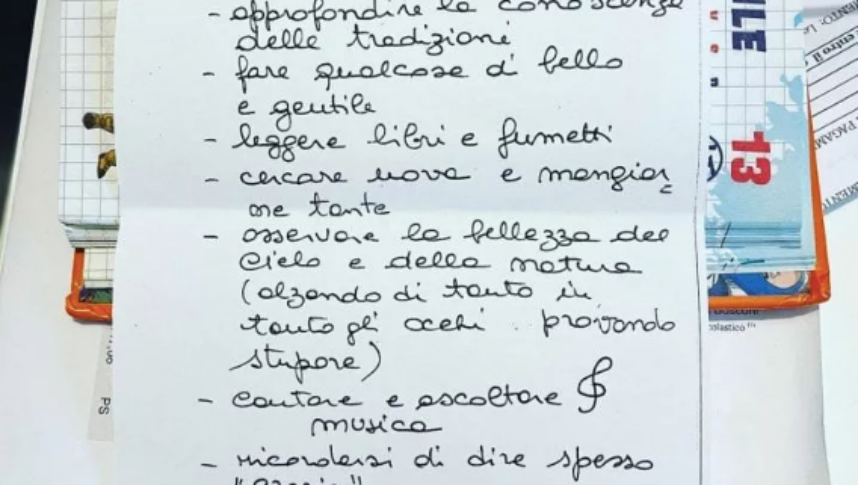 - approfondire la conoscenza
delle tradizioni
- fare qualcosa di bello
e gentile
- leggere libri e fumetti
- cercare uova e mangiar
ne tante
- osservare la bellezza del
cielo e della natura
(alzando di tanto in
tanto gli occhi provando
stupore)
- cantare e ascoltare
musica
- ricordarsi di dire spesso
"Grazie"
13
PS